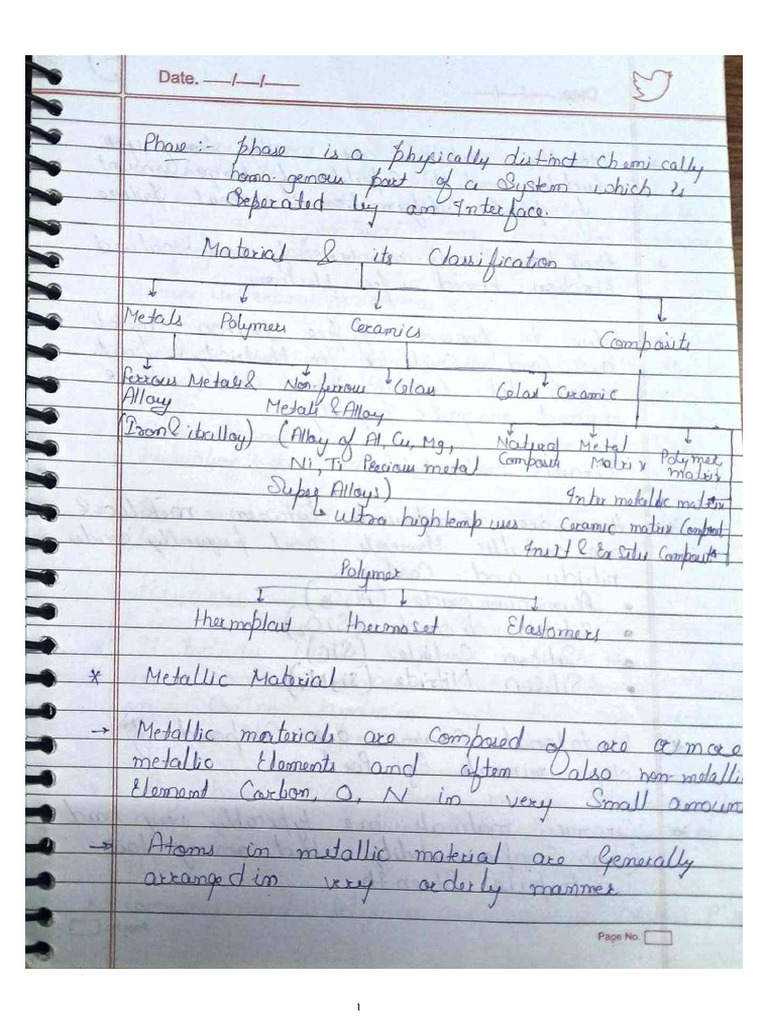 Date. __/__/__
Phase:- phase is a physically distinct chemically
homo-genous part of a System which is
Seperated by an Interface.
Material & its Classification
Metals Polymers Ceramics Composite
Ferrous Metals & Non-ferrous Glass Glass Ceramic
Alloy Metals & Alloy
(Iron & its alloy) (Alloy of Al, Cu, Mg, Natural Metal Polymer
Ni, Ti Precious metal Matrix matrix
Super Alloys) Inter metallic matrix
Ultra high temp uses Ceramic matrix
& Ex Situ
Polymer
thermoplast thermoset Elastomers
* Metallic Material
→ Metallic materials are composed of one or more
metallic Elements and often also non-metalli
Element Carbon, O, N in very Small amoun
→ Atoms in metallic material are Generally
arranged in very orderly manner
Page No.
1